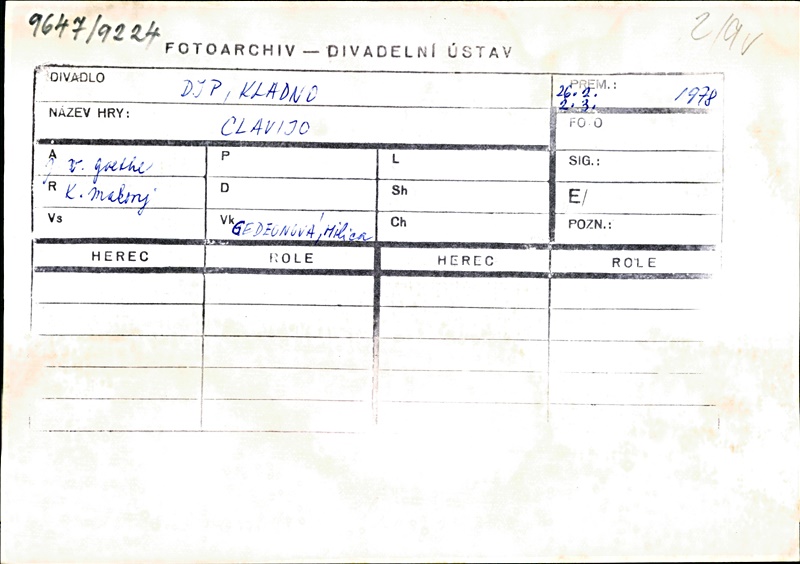 9647/9224
FOTOARCHIV — DIVADELNÍ ÚSTAV
DIVADLO DJP, KLADNO PREM.: 26. 2. 2. 3. 1978
NÁZEV HRY: CLAVIJO FOTO
A J. v. Goethe P L SIG.:
R K. D Sh E/
Vs Vk GEDEONOVÁ, Milica Ch POZN.:
HEREC ROLE HEREC ROLE